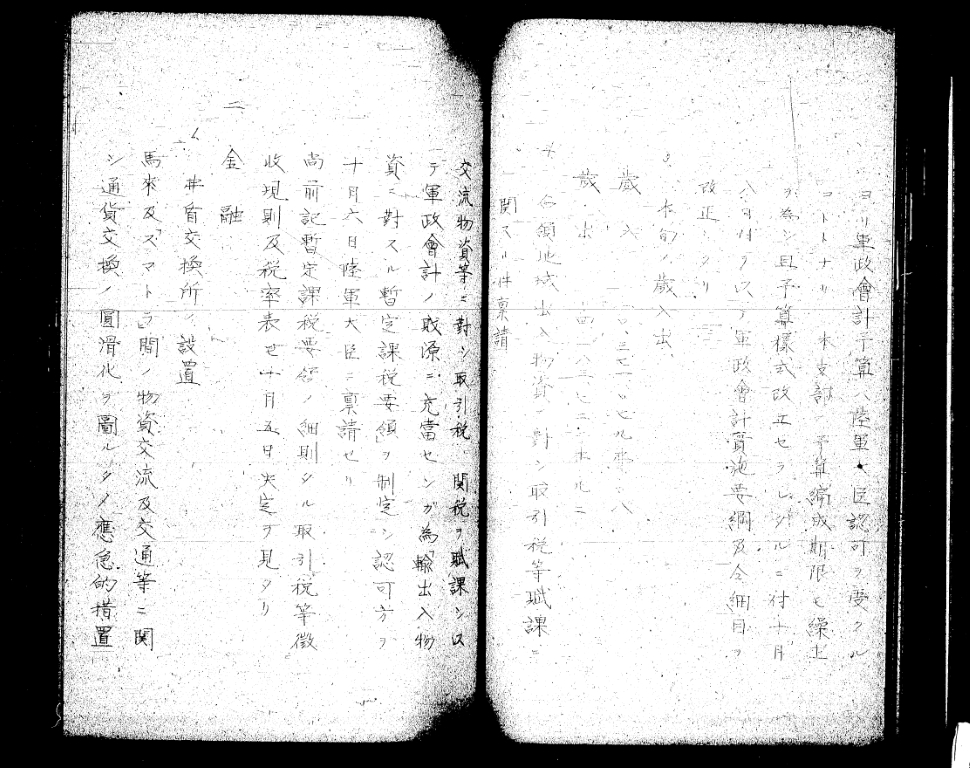 ヨリ軍政會計予算ハ陸軍大臣認可ヲ受クル
コトトナリ 本支部 予算編成期限モ繰上
ヲ為シ且予算様式改正セラレタルニ付十月
八日付ヲ以テ軍政會計實施要綱及令細目ヲ
改正シタリ
3. 本旬ノ歳入出
歳入
歳出
4. 各領地域出入物資ニ對シ取引税等賦課ニ
関スル件稟請
交流物資等ニ對シ取引税、関税ヲ賦課シ以
テ軍政會計ノ取源ニ充當センガ為「輸出入物
資ニ對スル暫定課税要領」ヲ制定シ認可方ヲ
十月六日陸軍大臣ニ稟請セリ
尚前記暫定課税要領ノ細則タル取引税等徴
收規則及税率表モ十月五日決定ヲ見タリ
二 金融
1. 弗盾交換所ノ設置
馬來及「スマトラ」間ノ物資交流及交通等ニ関
シ通貨交換ノ圓滑化ヲ圖ルタメ應急的措置